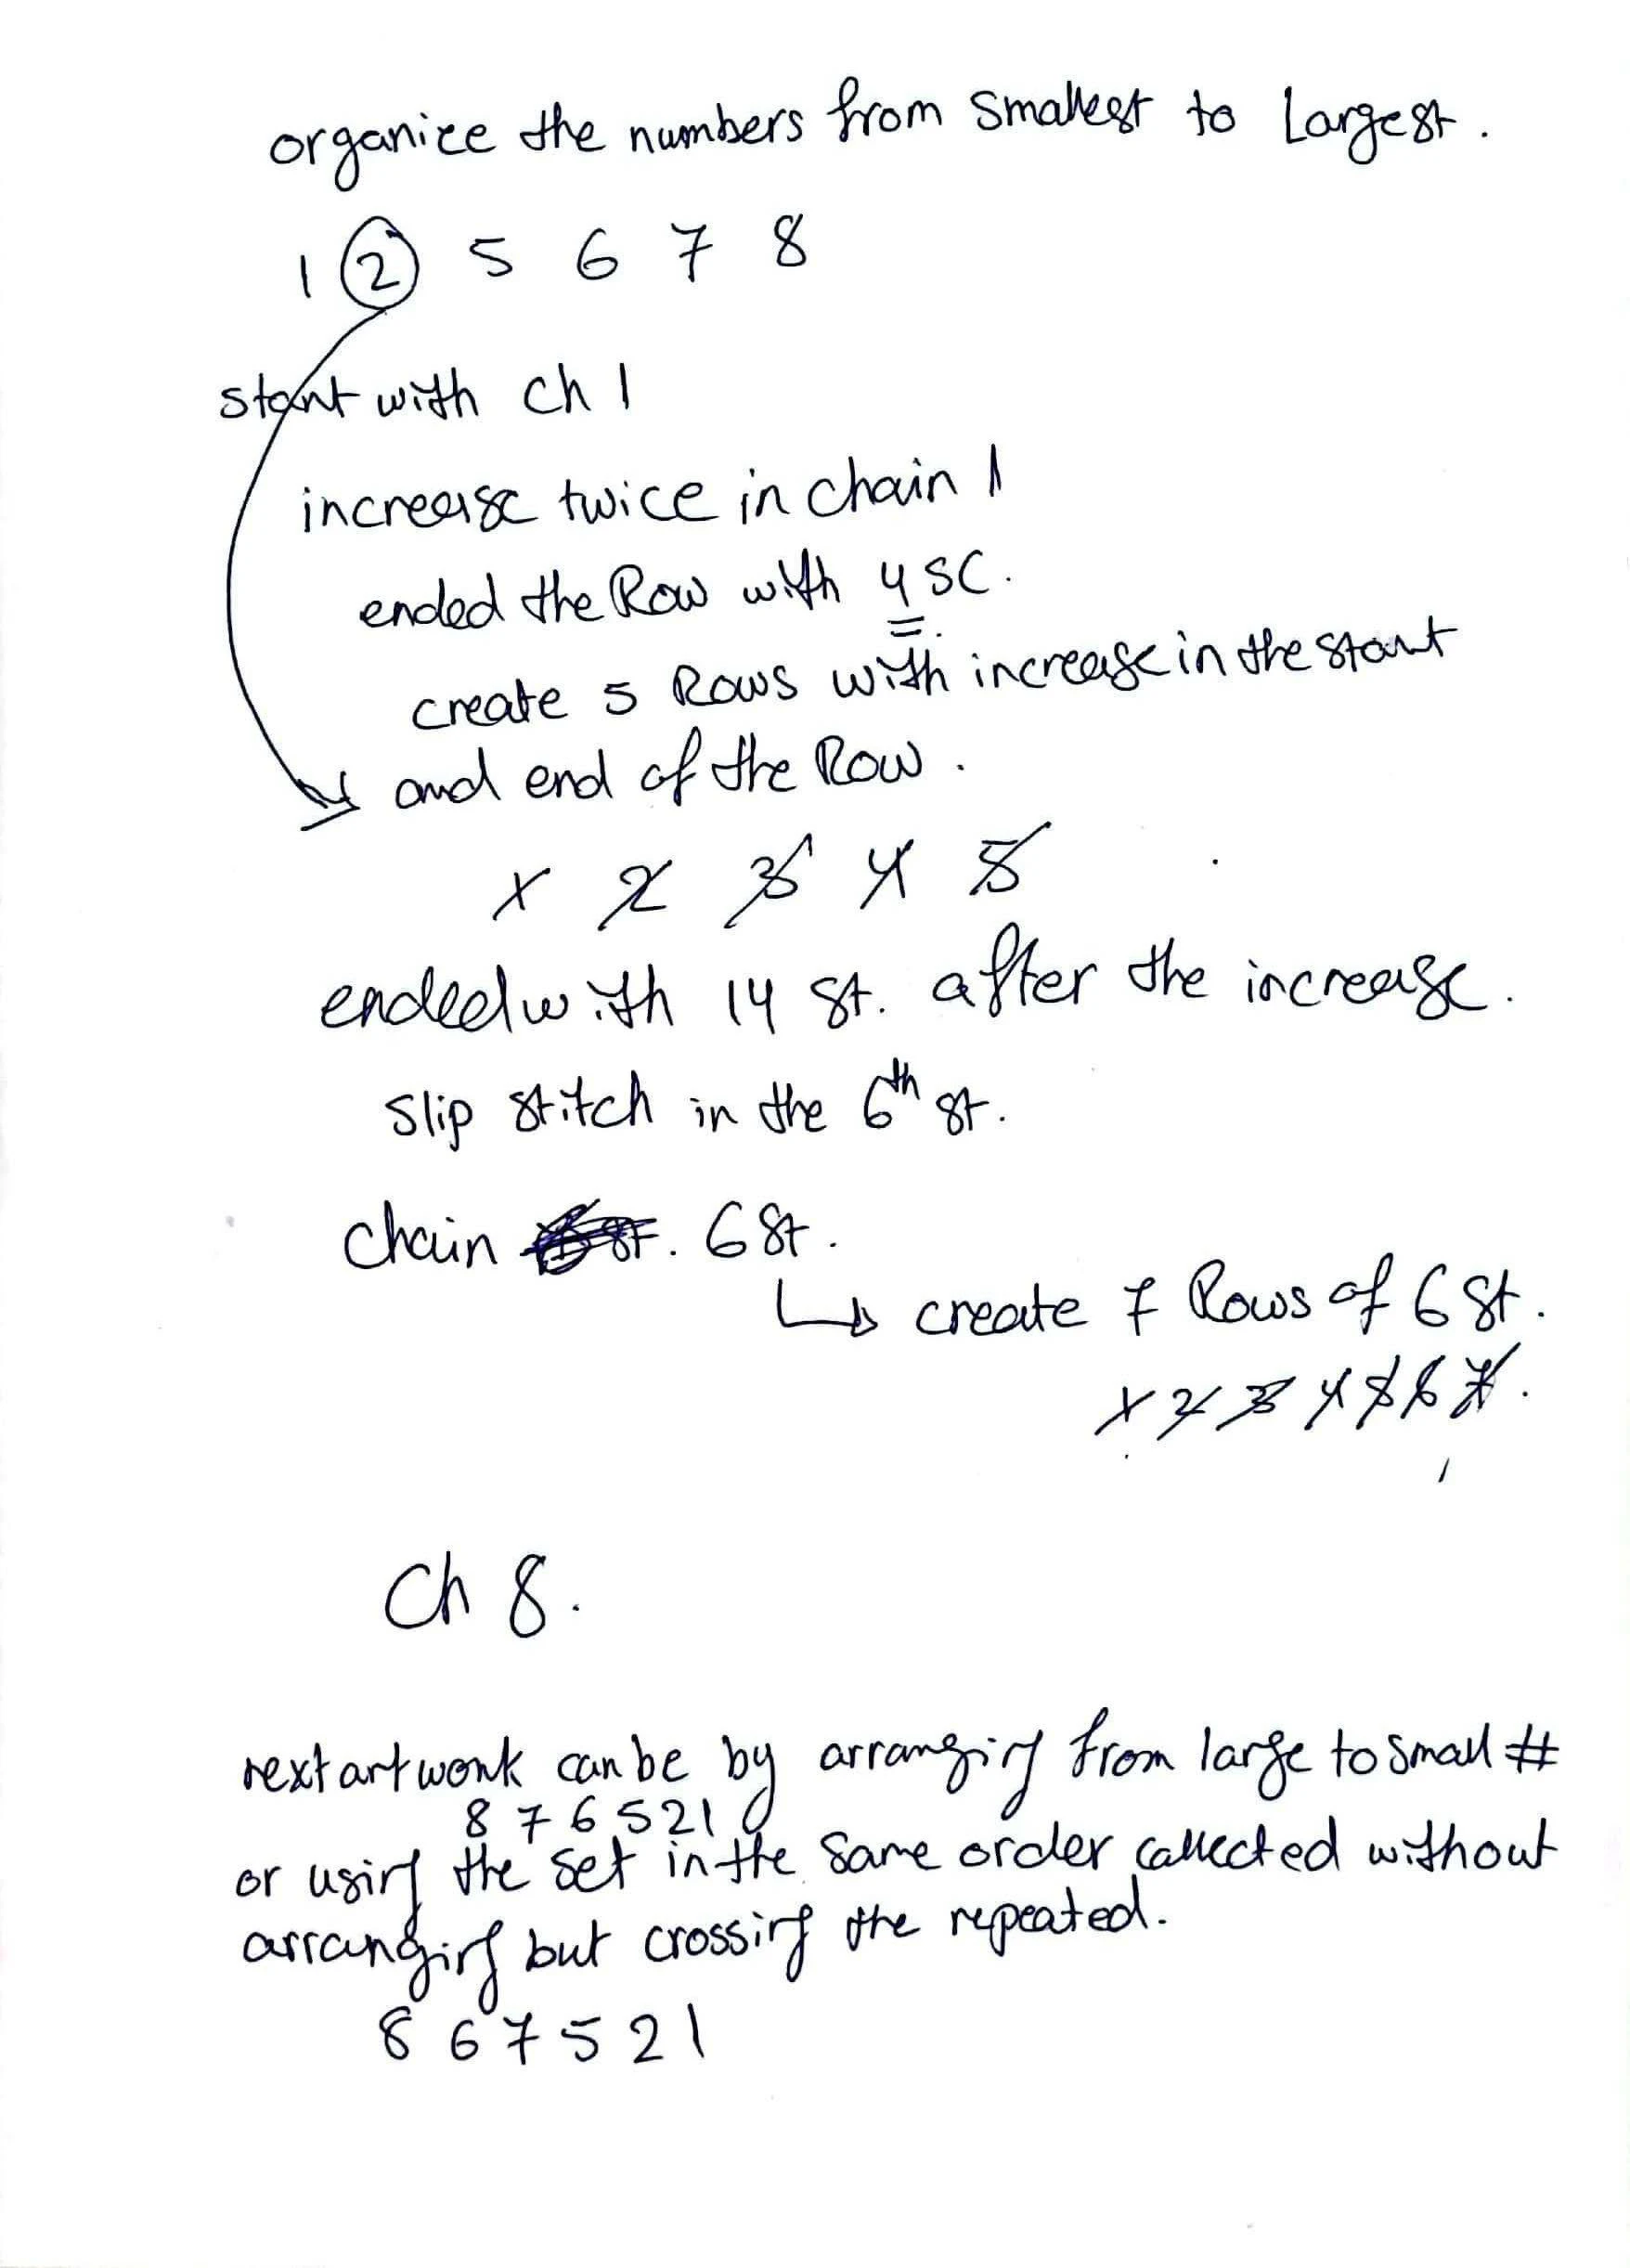 organize the numbers from smallest to Largest.
1 2 5 6 7 8
start with ch 1
increase twice in chain 1
ended the Row with 4 SC.
create 5 Rows with increase in the start
and end of the Row.
1 2 3 4 5
ended with 14 St. after the increase.
slip stitch in the 6th st.
chain 6 St.
create 7 Rows of 6 St.
1 2 3 4 5 6 7.
Ch 8.
next artwork can be by arranging from large to small #
8 7 6 5 2 1
or using the set in the same order collected without
arranging but crossing the repeated.
8 6 7 5 2 1